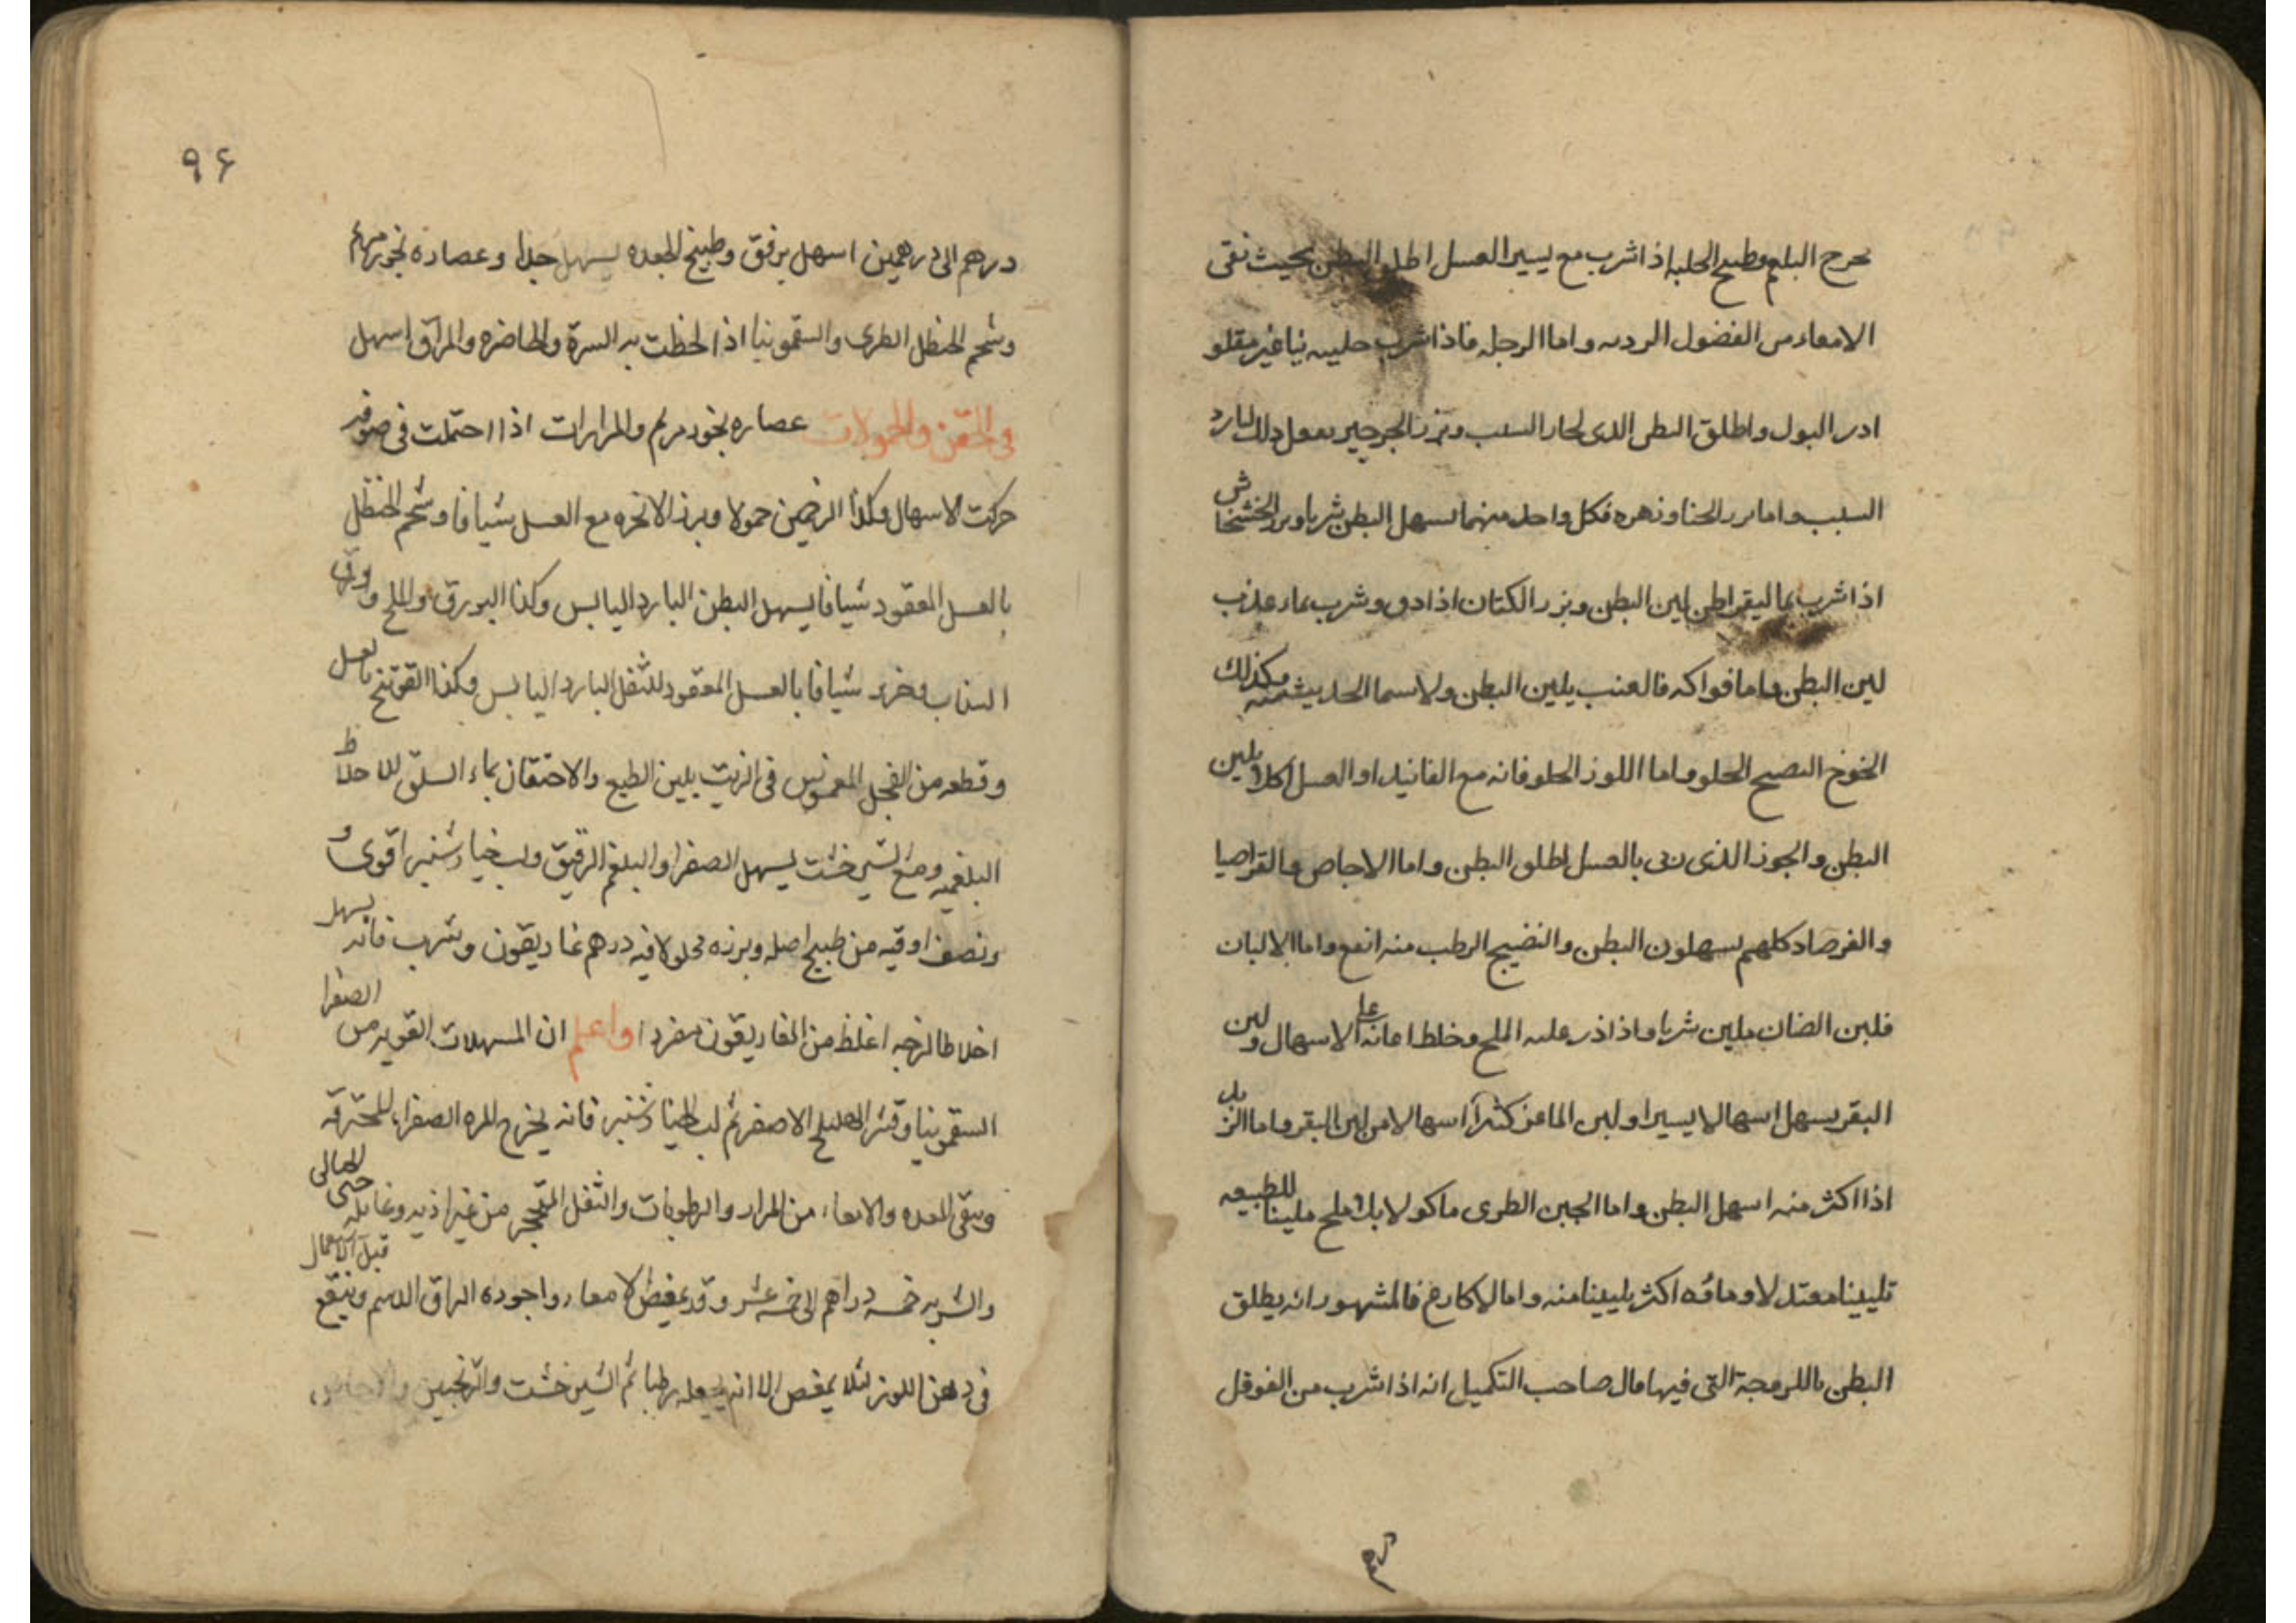 يخرج البلغم وطبيخ الحلبه اذا شرب مع يسير العسل اطلق البطن بحيث نقى
الامعاء من الفضول الرديه واما الرجله فاذا شرب حليبه نيا غير مقلو
ادر البول واطلق البطن الذى لحار السبب وبزر الجرجير يفعل ذلك لبارد
السبب واما بزر الحنا وزهره فكل واحد منهما يسهل البطن شربا وبزر الخشخاش
اذا شرب بماليقراطن لين البطن وبزر الكتان اذا دق وشرب بماء عذب
لين البطن واما فواكه فالعنب يلين البطن ولاسيما الحديث منه وكذلك
الخوخ النضيج الحلو واما اللوز الحلو فانه مع الفانيد او العسل اكلا يلين
البطن والجوز الذى ربى بالعسل اطلق البطن واما الاجاص والقراصيا
والفرصاد كلهم يسهلون البطن والنضيج الرطب منه انفع واما الالبان
فلبن الضان يلين شربا واذا ذر عليه الملح وخلط اعانه على الاسهال ولبن
البقر يسهل اسهالا يسيرا ولبن الماعز كثر اسهالا من لبن البقر واما الزبد
اذا اكثر منه اسهل البطن واما الجبن الطرى ماكولا بلا ملح ملينا للطبيعه
تليينا معتدلا وماؤه اكثر تليينا منه واما الاكارع فالمشهور انه يطلق
البطن باللزوجة التى فيها قال صاحب التكميل انه اذا شرب من الفوفل
درهم
٩٦
درهم الى درهمين اسهل برفق وطبيخ الجعده يسهل جدا وعصارة بخور مريم
وشحم الحنظل الطرى والسقمونيا اذا لطخت به السرة والخاصره والمراق اسهل
فى الحقن والحمولات عصاره بخور مريم والمرارات اذا احتملت فى صوفه
حركت الاسهال وكذا حمولا وبزر الانجره مع العسل شيافا وشحم الحنظل
بالعسل المعقود شيافا يسهل البطن البارد اليابس وكذا البورق والملح وورق
السذاب شيافا بالعسل المعقود للثفل البارد اليابس وكذا الفوتنج بالعسل
وقطعه من الفجل المغموس فى الزيت يلين الطبع والاحتقان بماء السلق للاخلاط
البلغميه ومع الشيرخشت يسهل الصفرا والبلغم الرقيق ولب خيار شنبر اقوى و
ونصف اوقيه من طبيخ اصله وبزره محلولا فيه درهم غاريقون وشرب فانه يسهل
اخلاطا لزجه اغلظ من الغاريقون مفردا واعلم ان المسهلات القويه من الصفرا
السقمونيا وقشر الهليلج الاصفر ثم لب الخيار شنبر فانه يخرج المره الصفراء المحترقه
وينقى المعده والامعاء من المرار والرطوبات والثفل المتحجر من غير اذيه وغائله حتى للحبالى
والشربه خمسه دراهم الى خمسه عشر وقد يمغص الامعاء واجوده البراق الدسم وينقع قبل الاستعمال
فى دهن اللوز لئلا يمغص الا انه رطبا ثم الشيرخشت والترنجبين والاجاص